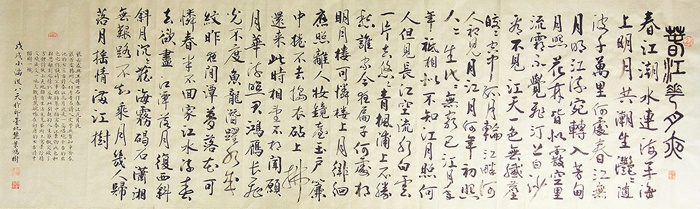 春江花月夜
春江潮水連海平海
上明月共潮生灩灩隨
波千萬里何處春江無
月明江流宛轉入芳甸
月照花林皆似霰空里
流霜不覺飛汀上白沙
看不見江天一色無纖塵
皎皎空中孤月輪江畔何
人初見月江月何年初照
人人生代代無窮已江月年
年祗相似不知江月照何
人但見長江空流水白雲
一片去悠悠青楓浦上不勝
愁誰家今夜扁舟子何處相思
明月樓可憐樓上月徘徊
應照離人妝鏡臺玉戶簾
中捲不去搗衣砧上拂
還來此時相望不相聞願逐
月華流照君鴻雁長飛
光不度魚龍潛躍水成
紋昨夜閒潭夢落花可
憐春半不回家江水流春
去欲盡江潭落月復西斜
斜月沉沉藏海霧碣石瀟湘
無限路不知乘月幾人歸
落月搖情滿江樹
戊戌小滿後